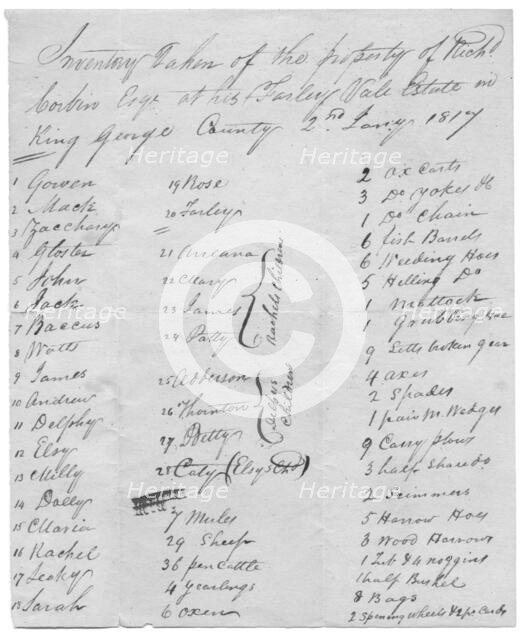 Inventory Taken of the property of Richd
Corbin Esqr at his Farley Vale Estate in
King George County 2nd Jany 1817
1 Gowen
2 Mack
3 Zacchary
4 Gloster
5 John
6 Jack
7 Baccus
8 Watts
9 James
10 Andrew
11 Delphy
12 Elsy
13 Milly
14 Dolly
15 Maria
16 Rachel
17 Jeaky
18 Sarah
19 Rose
20 Farley
21 Auriana
22 Mary
23 James
24 Patty
Rachels Children
25 Adderson
26 Thornton
27 Betty
Delsys Children
28 Caty (Elsys Chd)
7 Mules
29 Sheep
36 pen Cattle
4 Yearlings
6 Oxen
2 Ox Carts
3 Do Yokes &c
1 Do Chain
6 fish Barrels
6 Weeding Hoes
5 Helling Do
1 Mattock
1 Grubbing Hoe
9 Setts broken gear
4 Axes
2 Spades
1 pair M. Wedges
9 Carry plows
3 half Share do
2 Skimmers
5 Harrow Hoes
3 Wood Harrows
1 Tub & 4 noggins
1 half Bushel
8 Bags
2 Spening Wheels & 2 pr Cards
Heritage
Heritage
Heritage
Heritage
Heritage
Heritage
Heritage
Heritage